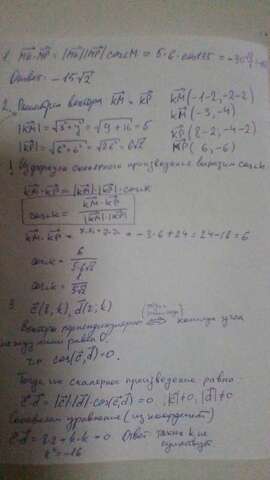 1. MK·MP = |MK||MP| cos M = 5·6·cos135 = -30
Ответ: -15√2
2. Рассмотрим векторы KM и KP KM(-1-2, -2-2)
|KM| = √3²+4² = √9+16 = 5 KM(-3, -4)
|KP| = √6²+6² = 6√2 KP(8-2, -4-2)
KP(6, -6)
скалярного произведения выразим cos K
KM·KP = |KM|·|KP|·cos K
cos K = KM·KP / |KM|·|KP|
KM·KP = = -3·6+24 = 24-18 = 6
cos K = 6 / 5·6√2
cos K = 1 / 5√2
3. c(2; k), d(8; k)
Векторы перпендикулярны ⟺ косинус угла
между ними равен 0.
cos(c;d) = 0.
Тогда их скалярное произведение равно:
c·d = |c||d|·cos(c;d) = 0 ; |c|≠0; |d|≠0
Составим уравнение (из координат)
c·d = 8·2 + k·k = 0 Ответ: таких k не
k² = -16 существует